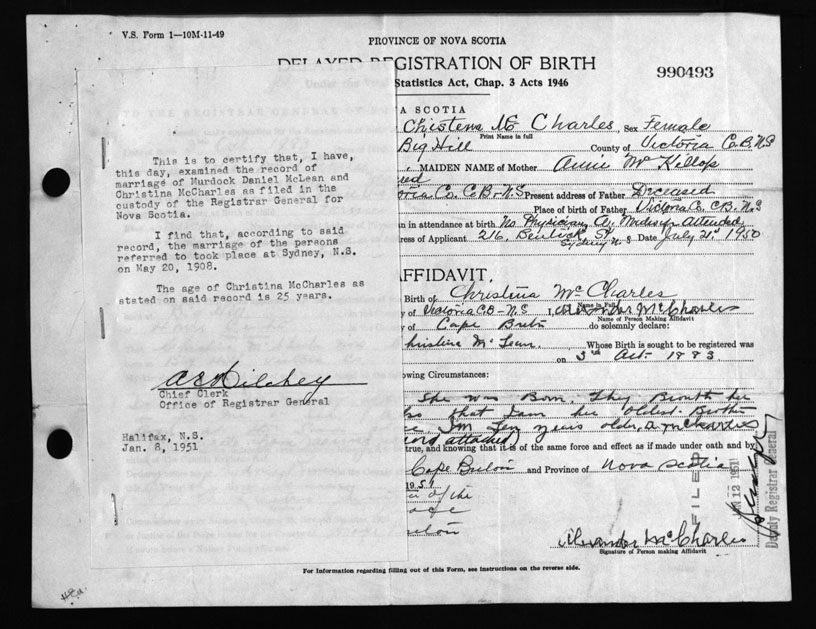 V.S. Form 1—10M-11-49
PROVINCE OF NOVA SCOTIA
DELAYED REGISTRATION OF BIRTH
990493
Statistics Act, Chap. 3 Acts 1946
This is to certify that, I have,
this day, examined the record of
marriage of Murdock Daniel McLean and
Christina McCharles as filed in the
custody of the Registrar General for
Nova Scotia.
I find that, according to said
record, the marriage of the persons
referred to took place at Sydney, N.S.
on May 20, 1908.
The age of Christina McCharles as
stated on said record is 25 years.
Chief Clerk
Office of Registrar General
Halifax, N.S.
Jan. 8, 1951
A SCOTIA
Christena Mc Charles, Sex Female
Print Name in full
Big Hill County of Victoria C.B.N.S
MAIDEN NAME of Mother Annie McKillop
oria Co. C.B-N.S Present address of Father Deceased
Place of birth of Father Victoria Co. C.B.N.S
n in attendance at birth No Physician A. Midwife Attended
ress of Applicant 216, Bentick St Date July 21st 1950
Sydney N.S
FFIDAVIT.
Birth of Christina McCharles
Name in Full
y of Victoria C.B-N.S I, Alexander McCharles
Name of Person Making Affidavit
y of Cape Breton do solemnly declare:
hristina McLean, Whose Birth is sought to be registered was
on 3rd Oct- 1883.
owing Circumstances:
She was Born. They
that I am her oldest Brother
I'm Ten years older, A McCharles
ord attached)
true, and knowing that it is of the same force and effect as if made under oath and by
Cape Breton and Province of Nova Scotia
1951
of the
eace
reton
FILED
JAN 12 1951
Deputy Registrar General
Alexander McCharles
Signature of Person making Affidavit
For Information regarding filling out of this Form, see instructions on the reverse side.